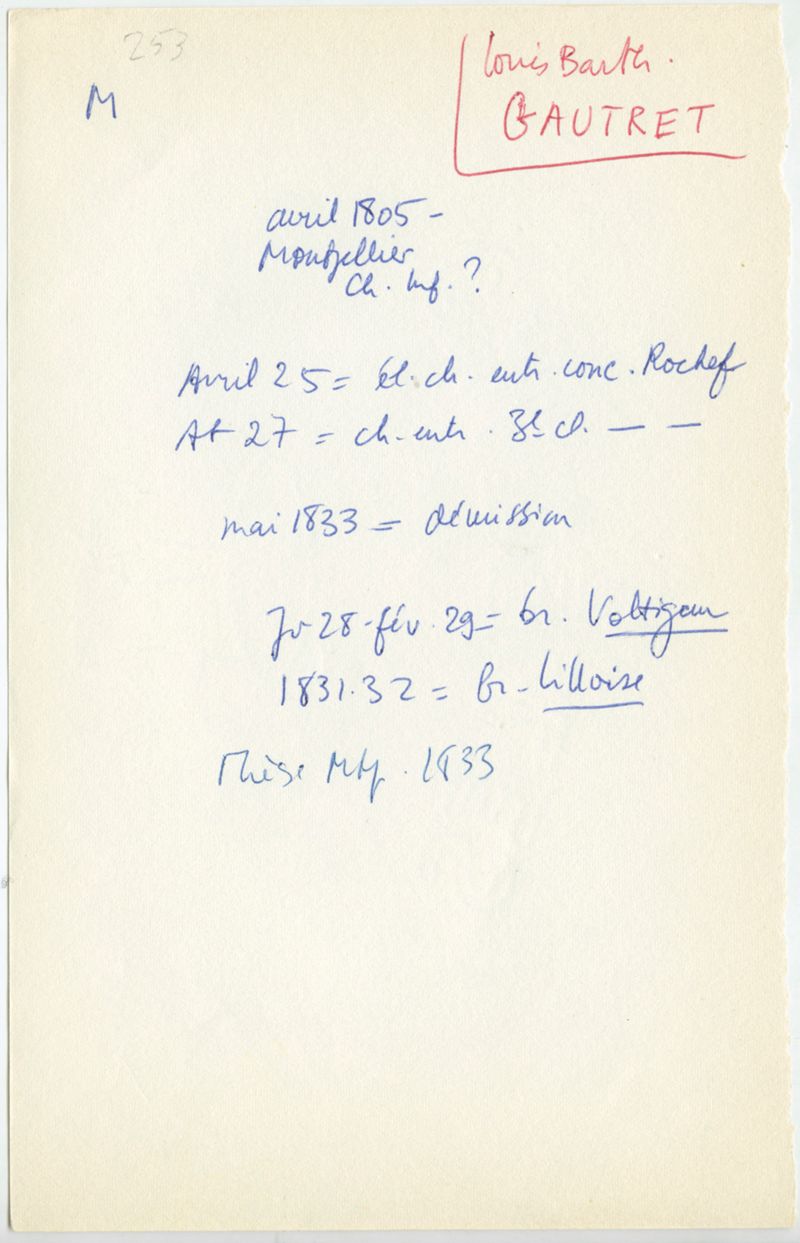 253
M
Louis Barth.
GAUTRET
avril 1805 -
Montpellier
Ch. Inf. ?
Avril 25 = él. ch. entr. conc. Rochef
At 27 = ch. entr. 3e cl. — —
mai 1833 = démission
Jv 28 - fév. 29 = br. Voltigeur
1831.32 = br. Lilloise
Thèse Mtp. 1833